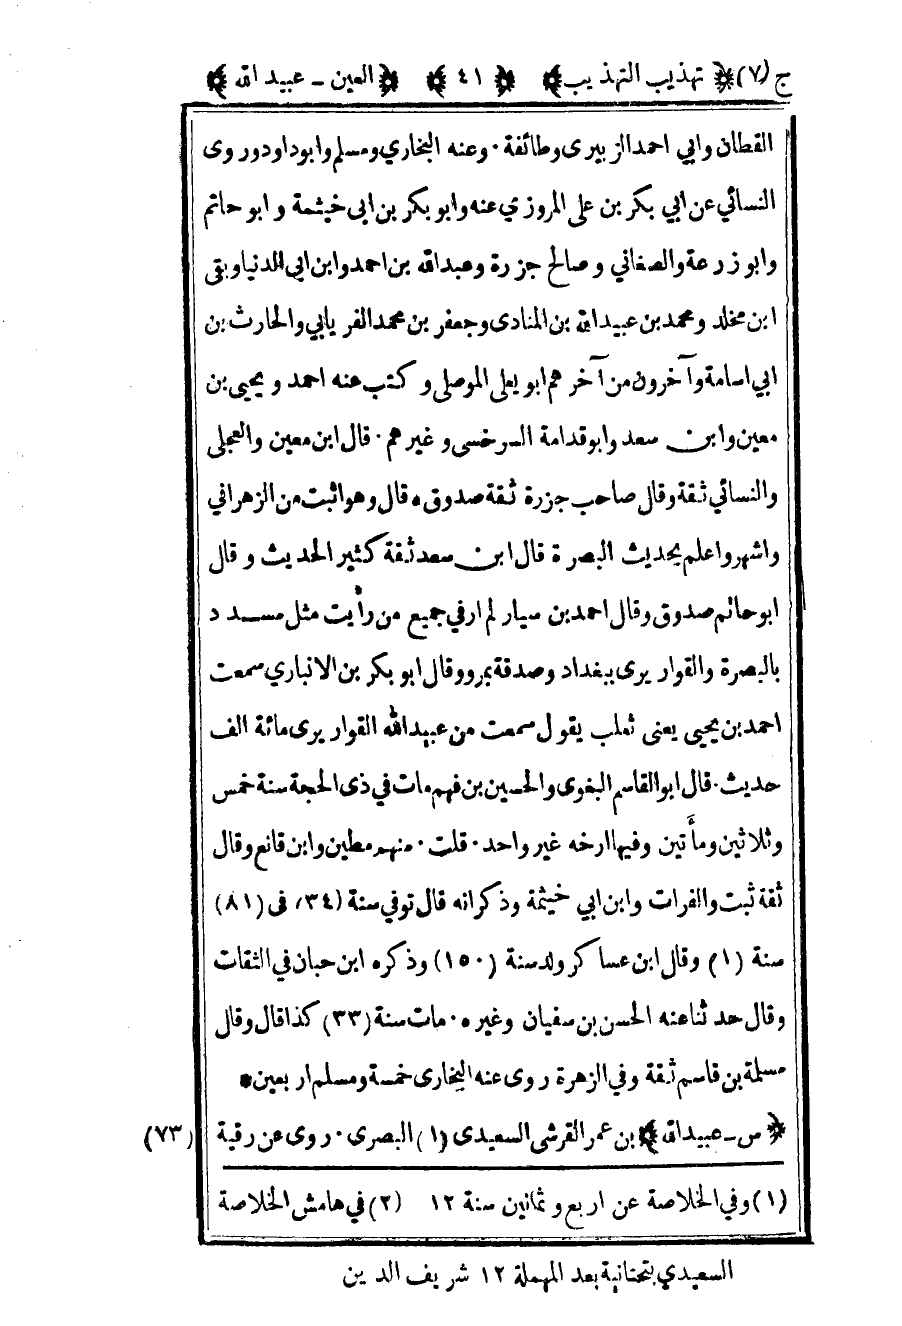 ج (٧) ﴿ تهذيب التهذيب ﴾ ﴿ ٤١ ﴾ ﴿ العين ـ عبيد الله ﴾
القطان وابي احمد الزبيرى وطائفة ٠ وعنه البخاري ومسلم وابوداود وروى
النسائي عن ابي بكر بن على المروزي عنه وابو بكر بن ابى خيثمة و ابو حاتم
وابو زرعة والصغاني و صالح جزرة وعبدالله بن احمد وابن ابي الدنيا وبقى
ابن مخلد ومحمد بن عبيدالله بن المنادى وجعفر بن محمد الفريابي والحارث بن
ابي اسامة وآخرون من آخرهم ابو يعلى الموصلي وكتب عنه احمد و يحيى بن
معين وابن سعد وابوقدامة السرخسى وغيرهم ٠ قال ابن معين والعجلى
والنسائي ثقة وقال صاحب جزرة ثقة صدوق ٠ قال وهو اثبت من الزهراني
واشهر واعلم بحديث البصرة قال ابن سعد ثقة كثير الحديث و قال
ابو حاتم صدوق وقال احمد بن سيار لم ار في جميع من رأيت مثل مسدد
بالبصرة والقواريرى ببغداد وصدقة بمرو وقال ابو بكر بن الانباري سمعت
احمد بن يحيى يعنى ثعلب يقول سمعت من عبيدالله القواريرى مائة الف
حديث ٠ قال ابوالقاسم البغوى والحسين بن فهم مات في ذى الحجة سنة خمس
وثلاثين ومأتين وفيها ارخه غير واحد ٠ قلت ٠ منهم مطين وابن قانع وقال
ثقة ثبت والفرات وابن ابي خيثمة وذكر انه قال توفي سنة (٣٤) فى (٨١)
سنة (١) وقال ابن عساكر ولد سنة (١٥٠) وذكره ابن حبان في الثقات
وقال حدثنا عنه الحسن بن سفيان وغيره ٠ مات سنة (٣٣) كذا قال وقال
مسلمة بن قاسم ثقة وفي الزهرة روى عنه البخارى خمسة ومسلم اربعين *
﴿ س ـ عبيدالله ﴾ بن عمر القرشى السعيدى (١) البصرى ٠ روى عن رقبة (٧٣)
(١) وفي الخلاصة عن اربع و ثمانين سنة ١٢ (٢) في هامش الخلاصة
السعيدي بتحتانية بعد المهملة ١٢ شريف الدين